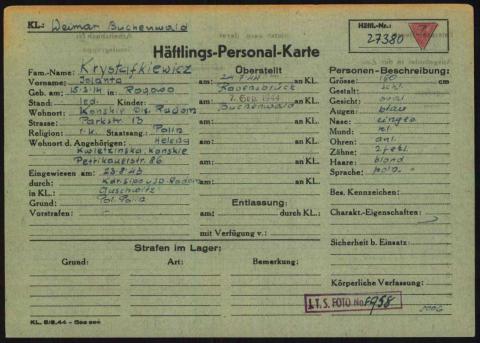 KL.: Weimar Buchenwald
Häftl.-Nr.:
27380
Häftlings-Personal-Karte
Fam.-Name: Krystafkiewicz
Vorname: Jolanta
Geb. am: 15.2.14 in Rogowo
Stand: led. Kinder:
Wohnort: Konskie Dis. Radom
Strasse: Parkstr. 13
Religion: r.k. Staatsang.: Polin
Wohnort d. Angehörigen: Helena
Kwiecinska, Konskie
Petrikauerstr. 86
Eingewiesen am: 23.8.43
durch: Radom
in KL.: Auschwitz
Grund: Pol. Polin
Vorstrafen:
Überstellt
am: an KL.
Ravensbrück
am: 7. Sep. 1944 an KL.
Buchenwald
am: an KL.
am: an KL.
am: an KL.
am: an KL.
Entlassung:
am: durch KL.:
mit Verfügung v.:
Personen-Beschreibung:
Grösse: 160 cm
Gestalt: schl.
Gesicht: oval
Augen: blau
Nase: eingeb.
Mund: kl.
Ohren: anl.
Zähne: 2 fehl.
Haare: blond
Sprache: poln.
Bes. Kennzeichen:
Charakt.-Eigenschaften:
Sicherheit b. Einsatz:
Körperliche Verfassung:
Strafen im Lager:
Grund: Art: Bemerkung:
I.T.S. FOTO No
KL. 5/8.44